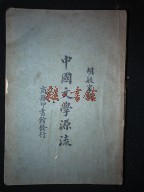 胡毓寰編
中國文學源流
商務印書館發行